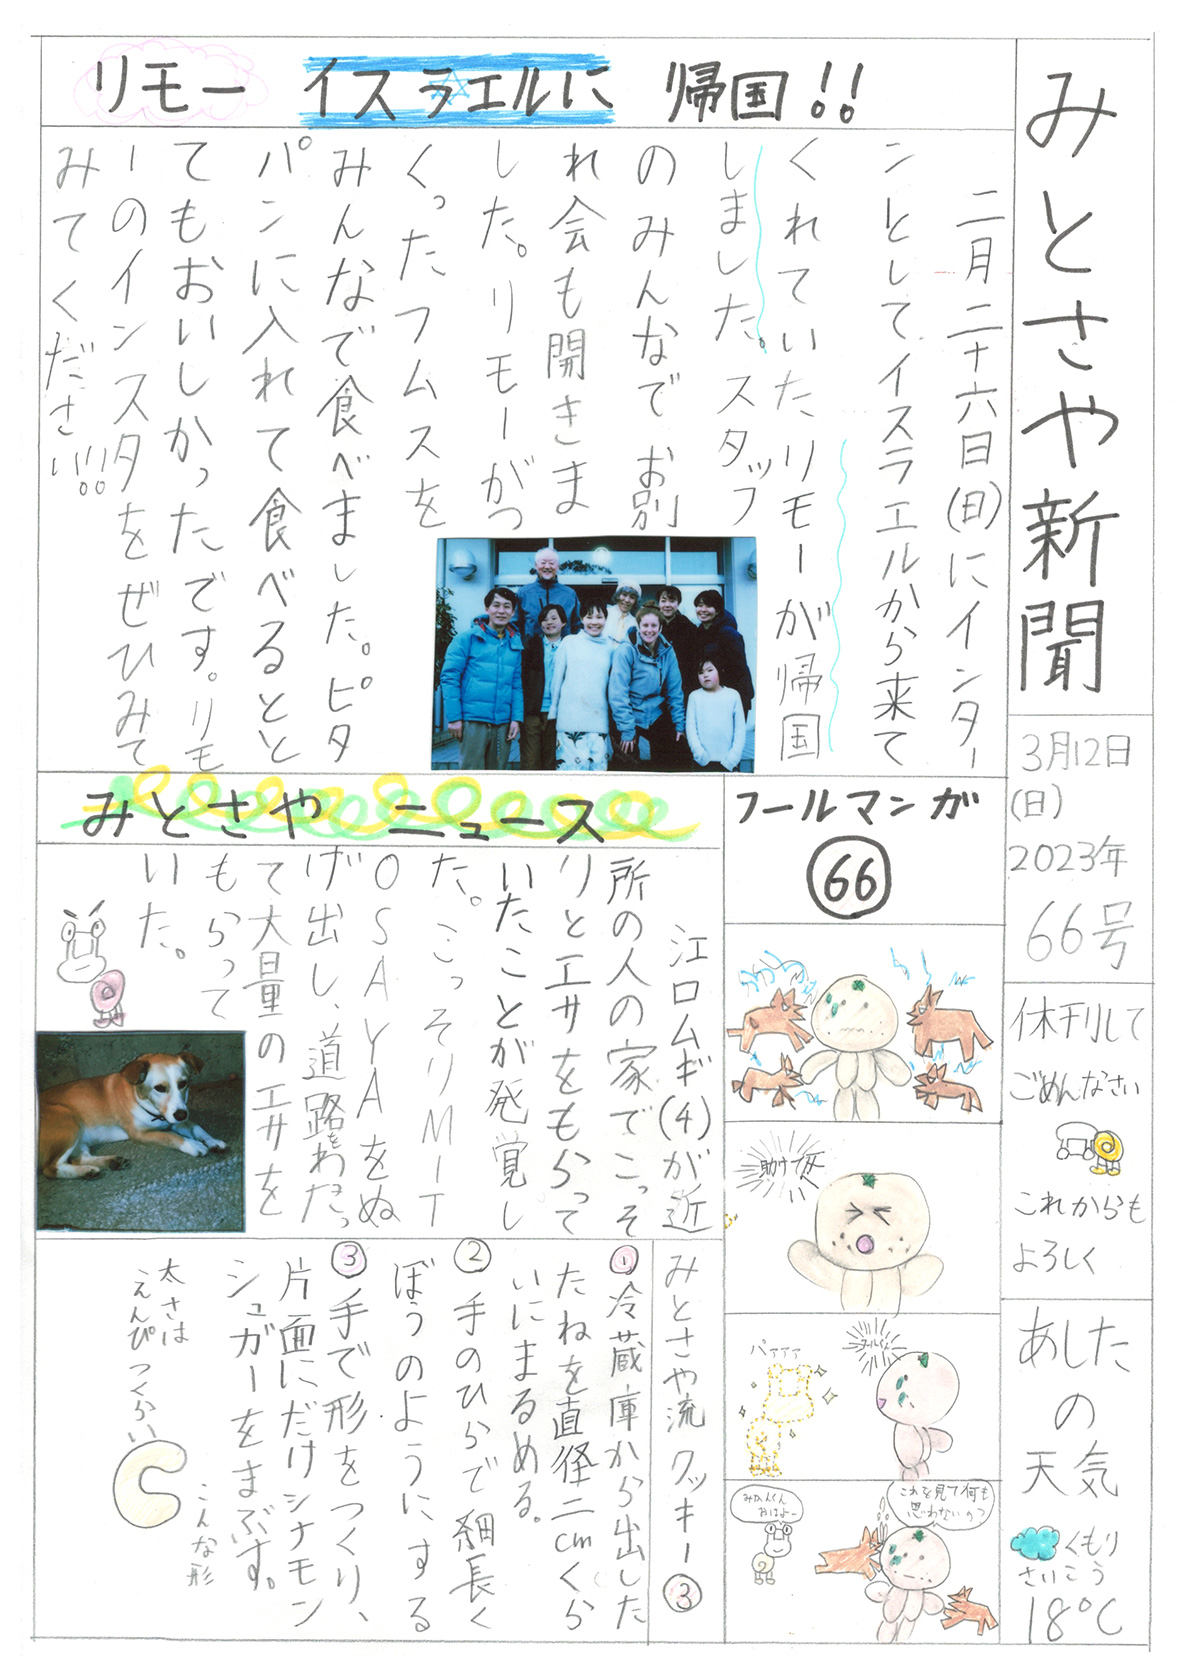 みとさや新聞
3月12日
(日)
2023年
66号
休刊して
ごめんなさい
これからも
よろしく
あした
の
天気
くもり
さいこう
18℃
リモー イスラエルに 帰国!!
二月二十六日(日)にインター
ンとしてイスラエルから来て
くれていたリモーが帰国
しました。スタッフ
のみんなでお別
れ会も開きま
した。リモーがつ
くったフムスを
みんなで食べました。ピタ
パンに入れて食べるとと
てもおいしかったです。リモ
ーのインスタをぜひみて
みてください!!!
みとさや ニュース
江口ムギ(4)が近
所の人の家でこっそ
りとエサをもらって
いたことが発覚し
た。こっそりMIT
OSAYAをぬ
げ出し、道路をわたっ
て大量のエサを
もらって
いた。
フールマンガ
66
助けて
パァァァ
みかんくん
おはよー
これを見て何も
思わないの?
みとさや流クッキー③
①冷蔵庫から出した
たねを直径二cmくら
いにまるめる。
②手のひらで細長く
ぼうのようにする
③手で形をつくり、
片面にだけシナモン
シュガーをまぶす。
太さは
えんぴつくらい
こんな形